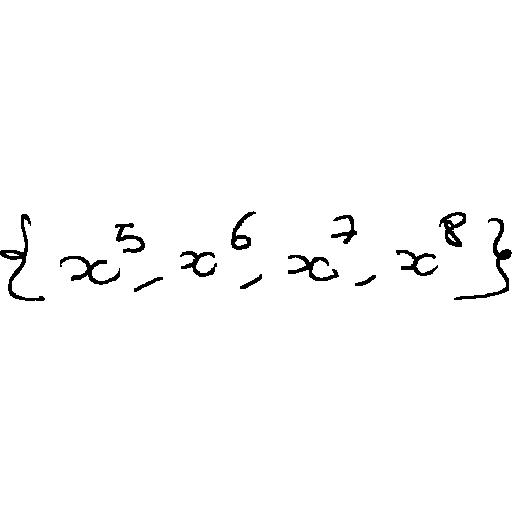 {x⁵, x⁶, x⁷, x⁸}